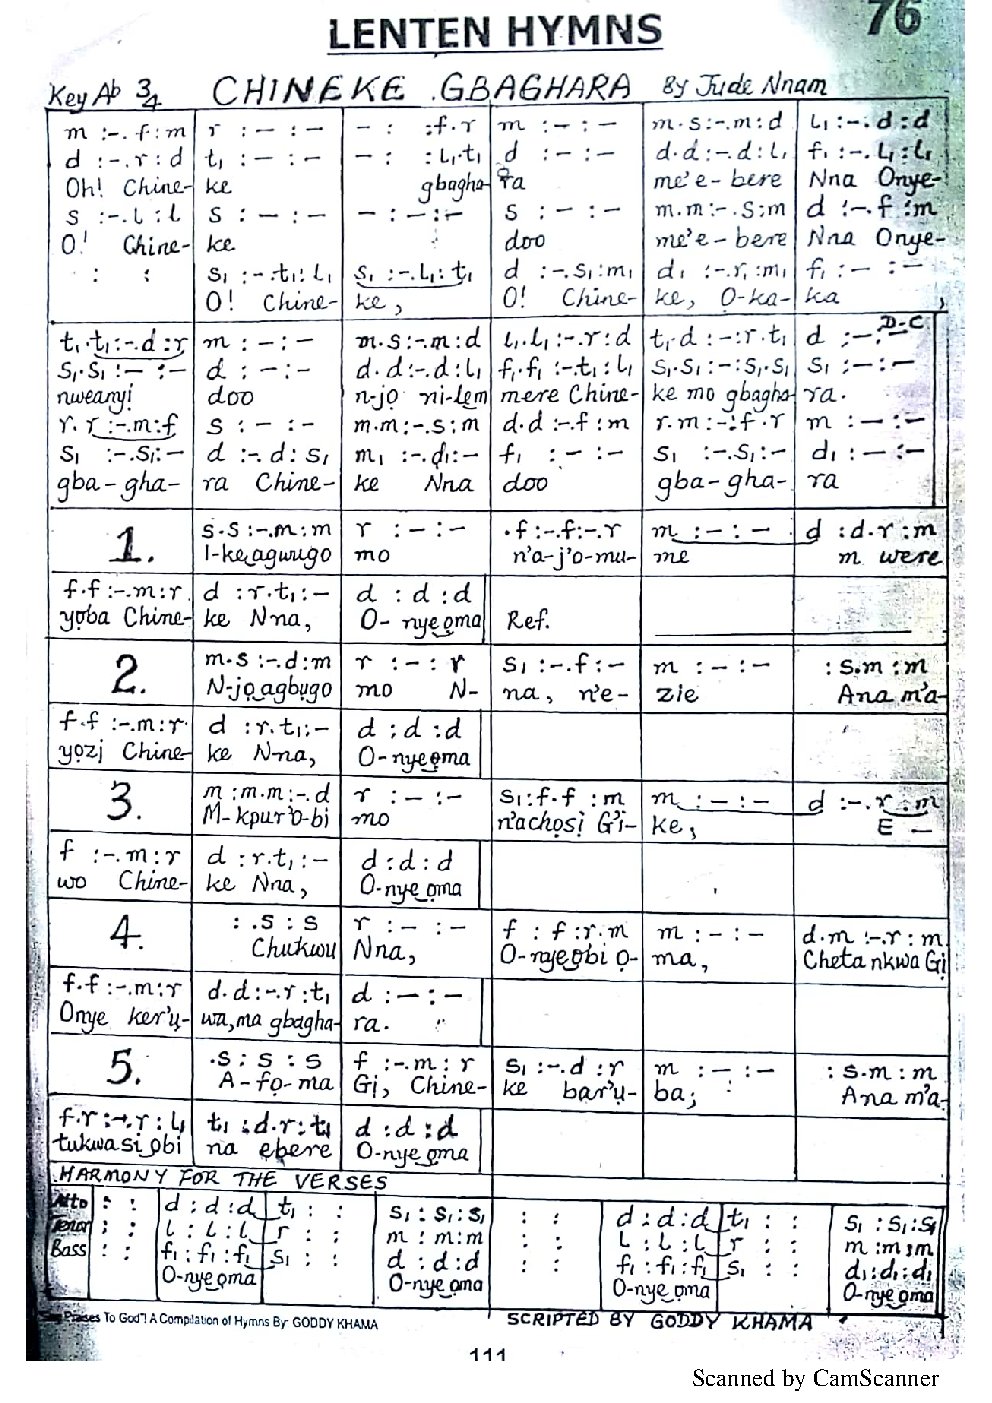 LENTEN HYMNS
76
Key Ab 3/4 CHINEKE GBAGHARA By Jude Nnam
m :-. f : m | r : - : - | - : :f.r | m : - : - | m.s :-.m : d | l₁ :-. d : d
d :-. r : d | t₁ : - : - | - : :l₁.t₁ | d : - : - | d.d :-.d : l₁ | f₁ :-. l₁ : l₁
Oh! Chine- | ke | gbagha- | ra | me'e-bere | Nna Onye-
s :-. l : l | s : - : - | - : - : - | s : - : - | m.m :-. s : m | d :-. f : m
O! Chine- | ke | | doo | me'e-bere | Nna Onye-
: : | s₁ :-. t₁ : l₁ | s₁ :-. l₁ : t₁ | d :-. s₁ : m₁ | d₁ :-. r₁ : m₁ | f₁ : - : -
O! Chine- | ke, | O! Chine- | ke, O-ka- | ka ,
t₁.t₁ :-. d : r | m : - : - | m.s :-. m : d | l₁.l₁ :-. r : d | t₁.d : - : r.t₁ | d : - : D.C
s₁.s₁ : - : - | d : - : - | d.d :-. d : l₁ | f₁.f₁ :-. t₁ : l₁ | s₁.s₁ : - : s₁.s₁ | s₁ : - : -
nweanyị | doo | n-jọ ni-lem | mere Chine- | ke mo gbagha- | ra.
r. r :-. m : f | s : - : - | m.m :-. s : m | d.d :-. f : m | r.m : - : f.r | m : - : -
s₁ :-. s₁ : - | d :-. d : s₁ | m₁ :-. d₁ : - | f₁ : - : - | s₁ :-. s₁ : - | d₁ : - : -
gba-gha- | ra Chine- | ke Nna | doo | gba-gha- | ra
1. | s.s :-. m : m | r : - : - | .f :-. f :-. r | m : - : - | d : d.r : m
I-ke agwugo | mo | n'a-j'o-mu- | me | m were
f.f :-. m : r | d : r.t₁ : - | d : d : d
yọba Chine- | ke Nna, | O-nye ọma | Ref.
2. | m.s :-. d : m | r : - : r | s₁ :-. f : - | m : - : - | : s.m : m
N-jọ agbụgo | mo N- | na, n'e- | zie | Ana m'a-
f.f :-. m : r | d : r.t₁ : - | d : d : d
yọzị Chine- | ke Nna, | O-nye ọma
3. | m : m.m :-. d | r : - : - | s₁ : f.f : m | m : - : - | d :-. r : m
M-kpụr'o-bi | mo | n'achọsị G'i- | ke, | E —
f :-. m : r | d : r.t₁ : - | d : d : d
wo Chine- | ke Nna, | O-nye ọma
4. | : .s : s | r : - : - | f : f : r.m | m : - : - | d.m :-. r : m
Chukwu | Nna, | O-nye obi ọ- | ma, | Cheta nkwa Gị
f.f :-. m : r | d.d :-. r : t₁ | d : - : -
Onye ker'ụ- | wa, ma gbagha- | ra.
5. | .s : s : s | f :-. m : r | s₁ :-. d : r | m : - : - | : s.m : m
A-fọ-ma | Gị, Chine- | ke bar'ụ- | ba; | Ana m'a-
f.r :-. r : l₁ | t₁ : d.r : t₁ | d : d : d
tukwasị obi | na ebere | O-nye ọma
HARMONY FOR THE VERSES
Alto : : | d : d : d | t₁ : : | s₁ : s₁ : s₁ | : : | d : d : d | t₁ : : | s₁ : s₁ : s₁
Tenor : : | l : l : l | r : : | m : m : m | : : | l : l : l | r : : | m : m : m
Bass : : | f₁ : f₁ : f₁ | s₁ : : | d : d : d | : : | f₁ : f₁ : f₁ | s₁ : : | d₁ : d₁ : d₁
O-nye ọma | O-nye ọma | O-nye ọma | O-nye ọma
Praises To God"! A Compilation of Hymns By: GODDY KHAMA
SCRIPTED BY GODDY KHAMA
111
Scanned by CamScanner